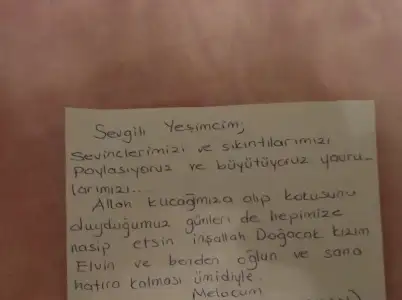 Sevgili Yeşimcim,
Sevinçlerimizi ve sıkıntılarımızı
Paylaşıyoruz ve büyütüyoruz yavru-
larımızı...
Allah kucağmıza alıp kokusunu
duyduğumuz günleri de hepimize
nasip etsin inşallah Doğacak kızım
Elvin ve benden oğlun ve sana
hatıra kalması ümidiyle.